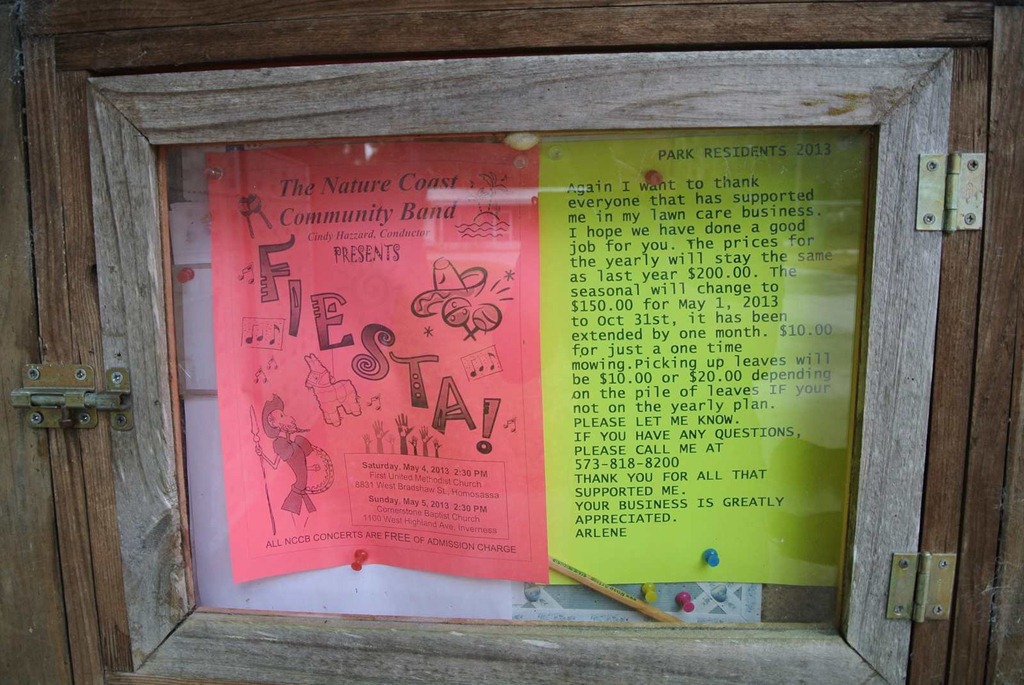 The Nature Coast
Community Band
Cindy Hazzard, Conductor
PRESENTS
FIESTA!
Saturday, May 4, 2013 2:30 PM
First United Methodist Church
8831 West Bradshaw St., Homosassa
Sunday, May 5, 2013 2:30 PM
Cornerstone Baptist Church
1100 West Highland Ave, Inverness
ALL NCCB CONCERTS ARE FREE OF ADMISSION CHARGE
PARK RESIDENTS 2013
Again I want to thank
everyone that has supported
me in my lawn care business.
I hope we have done a good
job for you. The prices for
the yearly will stay the same
as last year $200.00. The
seasonal will change to
$150.00 for May 1, 2013
to Oct 31st, it has been
extended by one month. $10.00
for just a one time
mowing.Picking up leaves will
be $10.00 or $20.00 depending
on the pile of leaves IF your
not on the yearly plan.
PLEASE LET ME KNOW.
IF YOU HAVE ANY QUESTIONS,
PLEASE CALL ME AT
573-818-8200
THANK YOU FOR ALL THAT
SUPPORTED ME.
YOUR BUSINESS IS GREATLY
APPRECIATED.
ARLENE